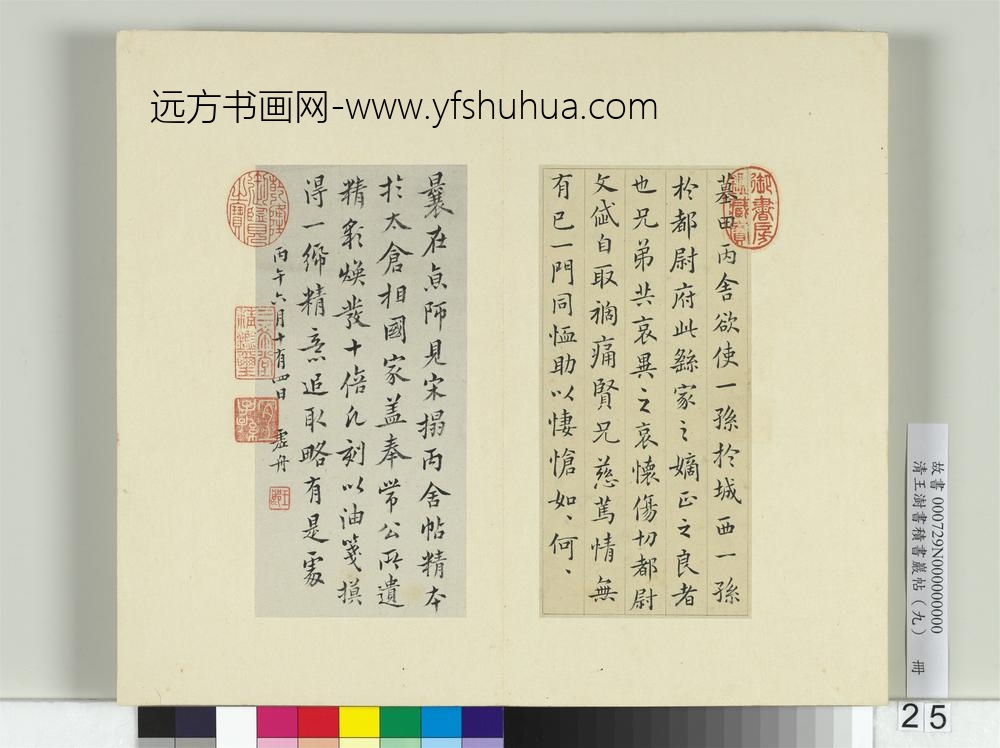 远方书画网-www.yfshuhua.com
墓田丙舍欲使一孫於城西一孫
於都尉府此繇家之嫡正之良者
也兄弟共哀異之哀懷傷切都尉
文岱自取禍痛賢兄慈篤情無
有已一門同恤助以悽愴如、何、
曩在京師見宋搨丙舍帖精本
於太倉相國家蓋奉常公所遺
精彩煥發十倍凡刻以油箋摸
得一締精意追取略有是處
丙午六月十有四日 虛舟
御書房鑑藏寶
乾隆御覽之寶
三希堂精鑑璽
宜子孫
王澍
故書 000729N000000000
清王澍書積書巖帖(九) 冊
25